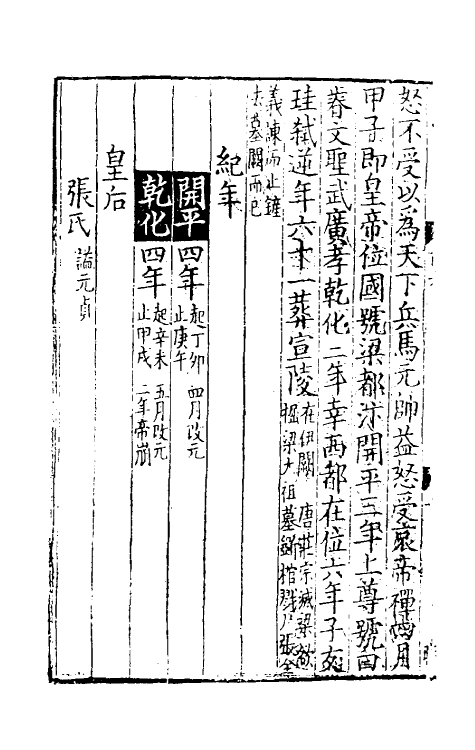 怒不受以爲天下兵馬元帥益怒受哀帝禪四月
甲子即皇帝位國號梁都汴開平三年上尊號曰
睿文聖武廣孝乾化二年幸西都在位六年子友
珪弑逆年六十一葬宣陵
在伊闕 唐莊宗滅梁欲
掘梁太祖墓斵棺戮尸張全
義諫而止鏟
去墓闕而已
紀年
開平四年
起丁卯 四月改元
止庚午
乾化四年
起辛未 五月改元
止甲戌 二年帝崩
皇后
張氏 諡元貞